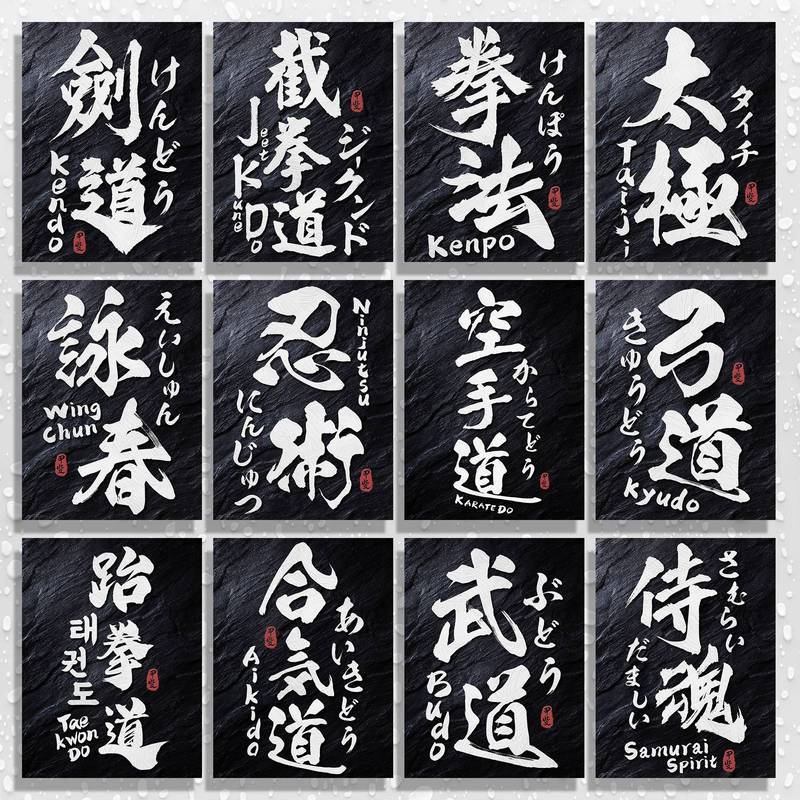 劍道
けんどう
Kendo
截拳道
ジークンド
Jeet Kune Do
拳法
けんぽう
Kenpo
太極
タイチ
Taiji
詠春
えいしゅん
Wing
Chun
忍術
Ninjutsu
にんじゅつ
空手道
からてどう
KARATE DO
弓道
きゅうどう
Kyudo
跆拳道
태권도
Tae
kwon
DO
合気道
あいきどう
Aikido
武道
ぶどう
Budo
侍魂
さむらい
だましい
Samurai
Spirit